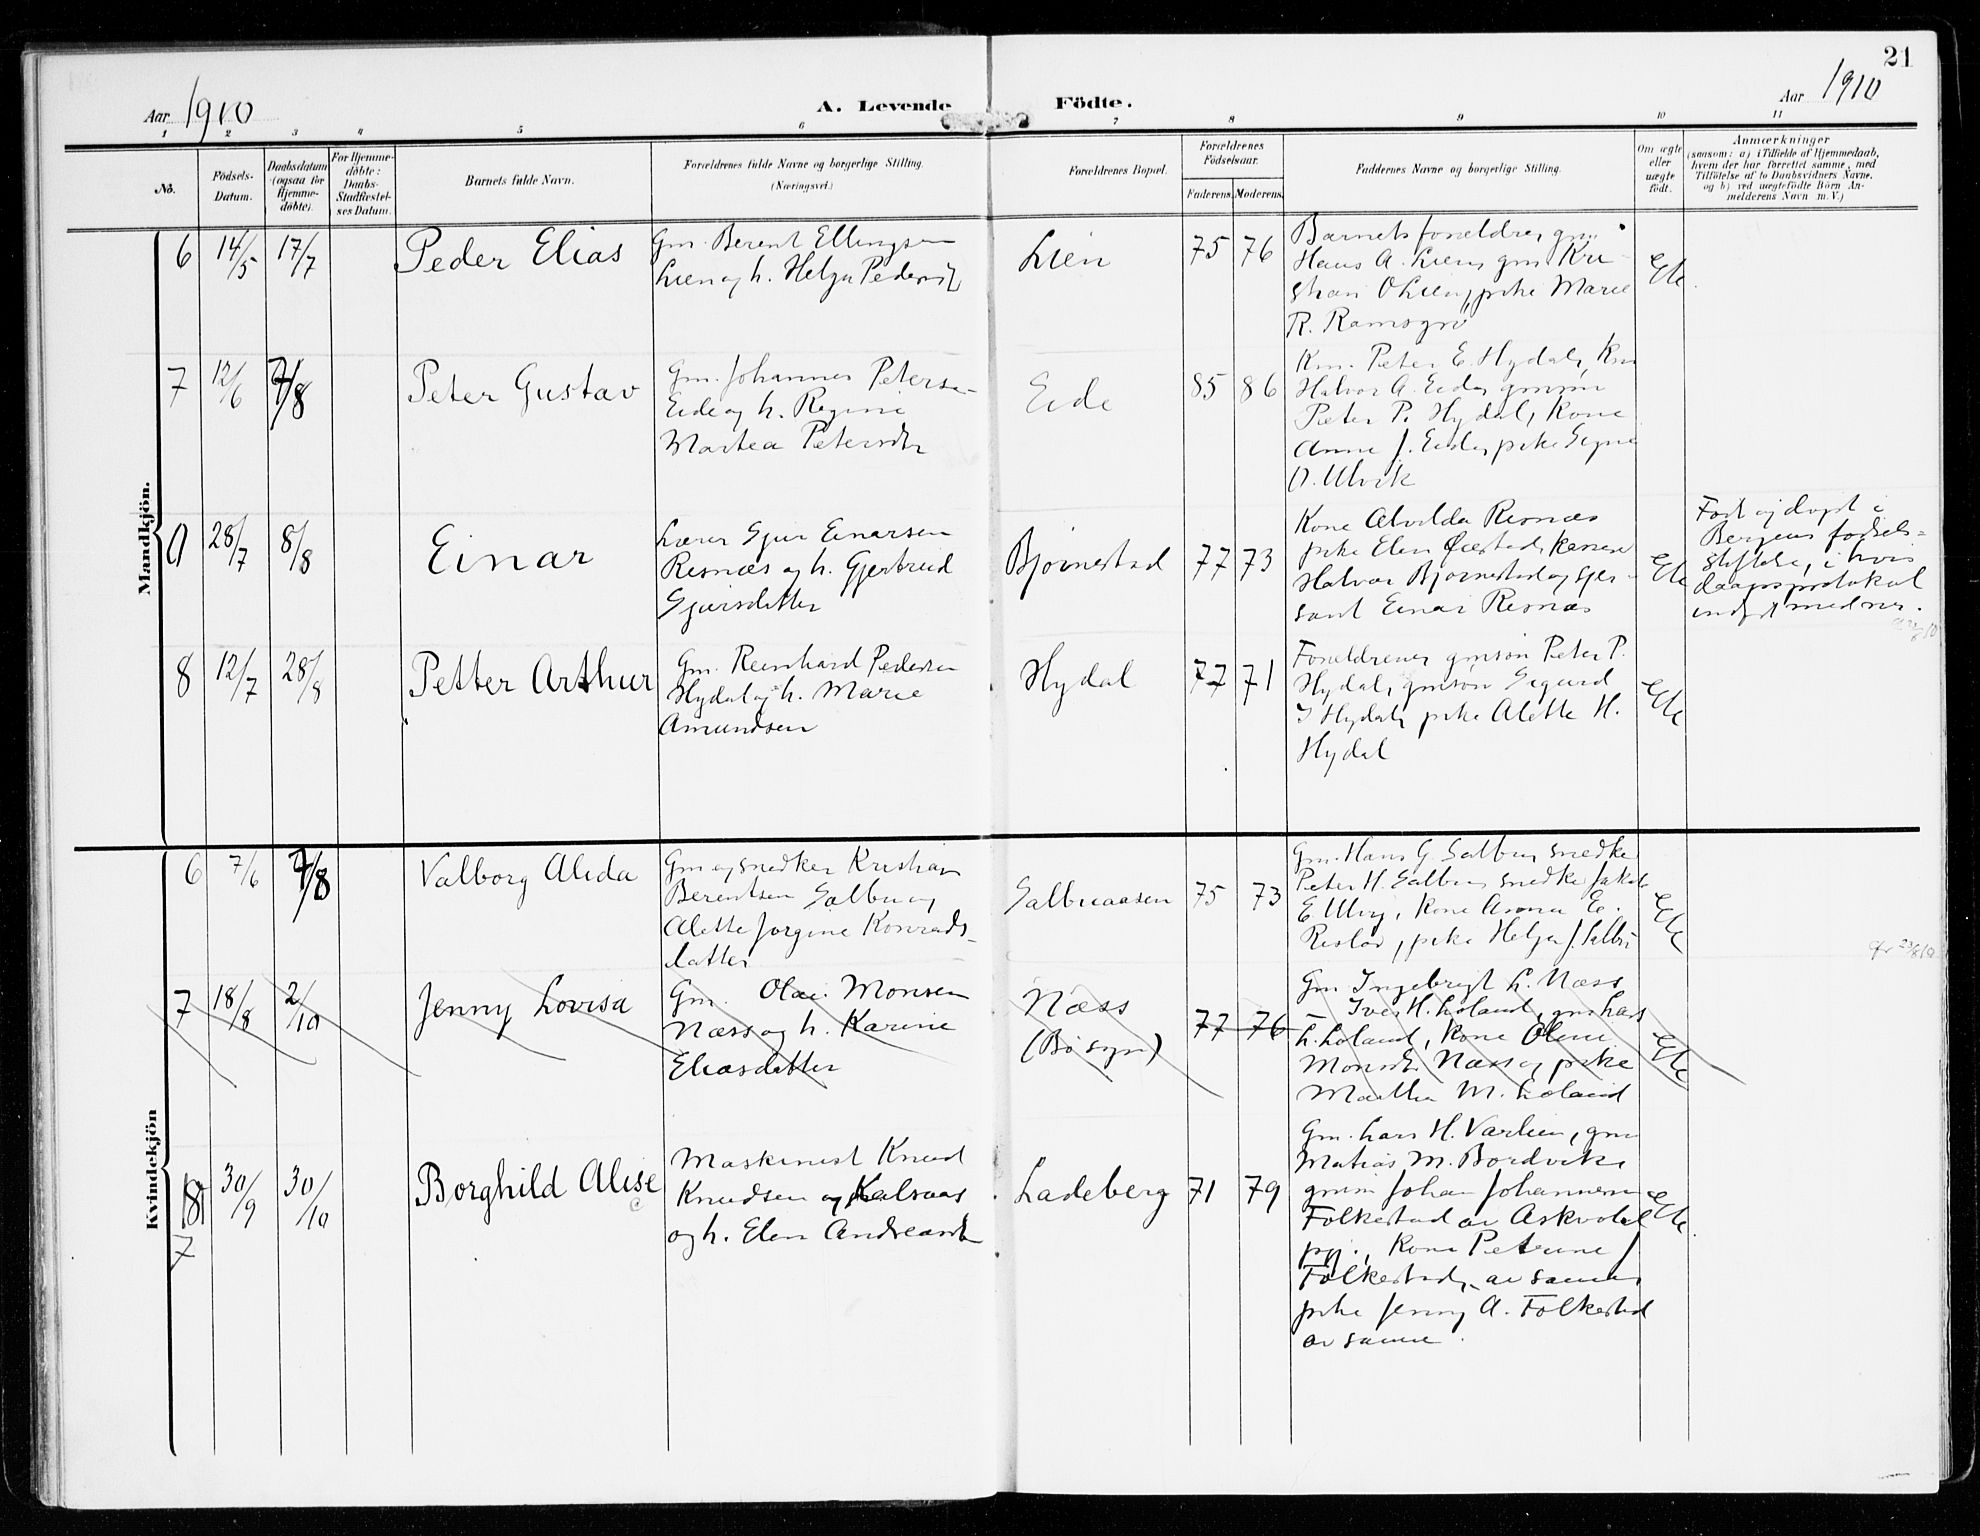 21
Aar 1910
A. Levende Födte.
Aar 1910
1 2 3 4 5 6 7 8 9 10 11
No.
Födsels-
Datum.
Daabsdatum
(ogsaa for
Hjemme-
döbte).
For Hjemme-
döbte:
Daabs-
Stadfæstel-
ses Datum.
Barnets fulde Navn.
Forældrenes fulde Navne og borgerlige Stilling.
(Næringsvei.)
Forældrenes Bopæl.
Forældrenes
Födselsaar.
Faderens. Moderens.
Faddernes Navne og borgerlige Stilling.
Om ægte
eller
uægte
født.
Anmærkninger
(saasom: a) i Tilfælde af Hjemmedaab,
hvem der har forrettet samme, med
Tilföielse af to Daabsvidners Navne,
og b) ved uægtefödte Börn An-
melderens Navn m. V.)
Mandkjön.
6 14/5 17/7
Peder Elias
Gm. Berent Ellingsen
Lien og h. Helga Pedersd
Lien
75 76
Barnets foreldre, gm.
Hans A. Lien, gm. Kri-
stian O Lien, pike Marie
R. Ramsgrø
Ekte
7 12/6 7/8
Peter Gustav
Gm. Johannes Peterse-
Eide og h. Regine
Martea Petersdtr
Eide
85 86
Km. Peter E. Hydal, Km
Halvor A. Eide, gmsøn
Peter P. Hydal, Kone
Anna J. Eide, pike Signe
O. Ulvik
28/7 8/8
Einar
Lærer Sjur Einarsen
Resnæs og h. Gjertrud
Sjursdatter
Bjørnestad
77 73
Kone Alvilda Resnæs
pike Elen Øiestad,
Halvor Bjørnestad og Sjer-
sant Einar Resnæs
Ekte
Født og døpt i
Bergens fødsels=
stiftelse, i hvis
daapsprotokol
indført med nr.
8 12/7 28/8
Petter Arthur
Gm. Reinhard Pedersen
Hydal og h. Marie
Amundsen
Hydal
77 71
Foreldrene, gmsøn Peter P.
Hydal, gmsøn Sigurd
I Hydal, pike Alette H.
Hydal
Ekte
Kvindekjön
6 7/6 7/8
Valborg Alida
Gm og snedker Kristian
Berentsen Salbu og
Alette Jørgine Konrads-
datter
Salbuaasen
75 73
Gm. Hans G. Salbu, snedke
Peter H. Salbu, snedke Jakob
E Ulvik, Kone Anna E.
pike Helga J. Salbu
Ekte
7 18/8 2/10
Jenny Lovisa
Gm. Olai Monsen
Næss og h. Karine
Eliasdatter
Næss
(Bø sogn)
77 76
Gm Ingebrigt L. Næss
Iver H. Løland, gm Lars
L. Løland, Kone Oline
Monsdtr Næss og pike
Martha M. Løland
Ekte
8 30/9 30/10
7
Borghild Alise
Maskinist Knud
Knudsen Kalsaas
og h. Elen Andreasdtr
Ladeberg
71 79
Gm. Lars H. Varlien, gm
Matias M. Bordvik,
gmsøn Johan Johannesen
Folkestad av Askvold
pgj., Kone Petrine J
Folkestad, av samme,
pike Jenny A. Folkestad
av samme.
Ekte